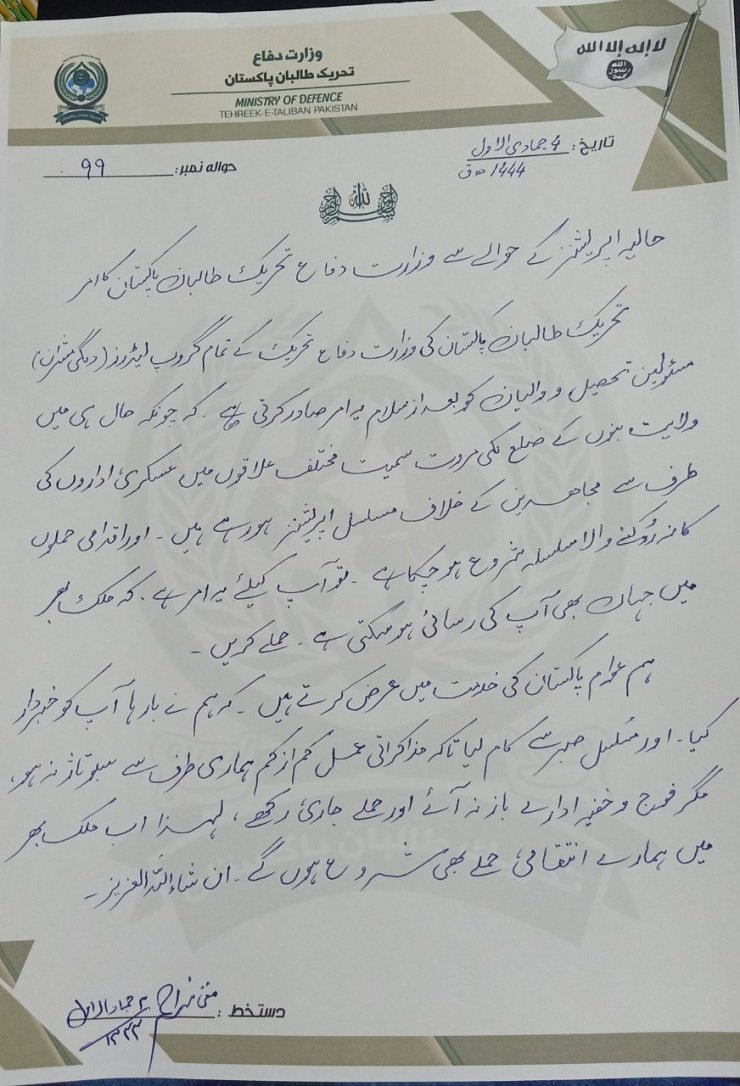 وزارت دفاع
تحریک طالبان پاکستان
MINISTRY OF DEFENCE
TEHREEK-E-TALIBAN PAKISTAN
لا إله إلا الله
الله
رسول
محمد
تاریخ: 4 جمادی الاول
1444 ھ ق
حوالہ نمبر: 99
حالیہ اپریشنز کے حوالے سے وزارت دفاع تحریک طالبان پاکستان کا امر
تحریک طالبان پاکستان کی وزارت دفاع تحریک کے تمام گروپ لیڈرز (دلگی مشران)
مسئولین تحصیل و والیان کو بعد از سلام یہ امر صادر کرتی ہے ۔ کہ چونکہ حال ہی میں
ولایت بنوں کے ضلع لکی مروت سمیت مختلف علاقوں میں عسکری اداروں کی
طرف سے مجاھدین کے خلاف مسلسل اپریشنز ہورہے ہیں ۔ اور اقدامی حملوں
کا نہ رُوکنے والا سلسلہ شروع ہوچکا ہے ۔ تو آپ کیلئے یہ امر ہے ۔ کہ ملک بھر
میں جہاں بھی آپ کی رسائی ہوسکتی ہے ۔ حملے کریں ۔
ہم عوام پاکستان کی خدمت میں عرض کرتے ہیں ۔ کہ ہم نے بارہا آپ کو خبردار
کیا ۔ اور مسلسل صبر سے کام لیا تاکہ مذاکراتی عمل کم از کم ہماری طرف سے سبوتاژ نہ ہو،
مگر فوج و خفیہ ادارے باز نہ آئے اور حملے جاری رکھے ، لہذا اب ملک بھر
میں ہمارے انتقامی حملے بھی شروع ہوں گے ۔ ان شاءاللہ العزیز ۔
دستخط: